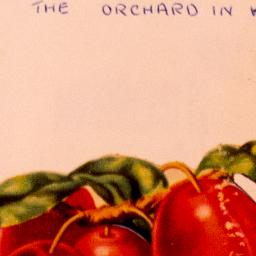 THE ORCHARD IN